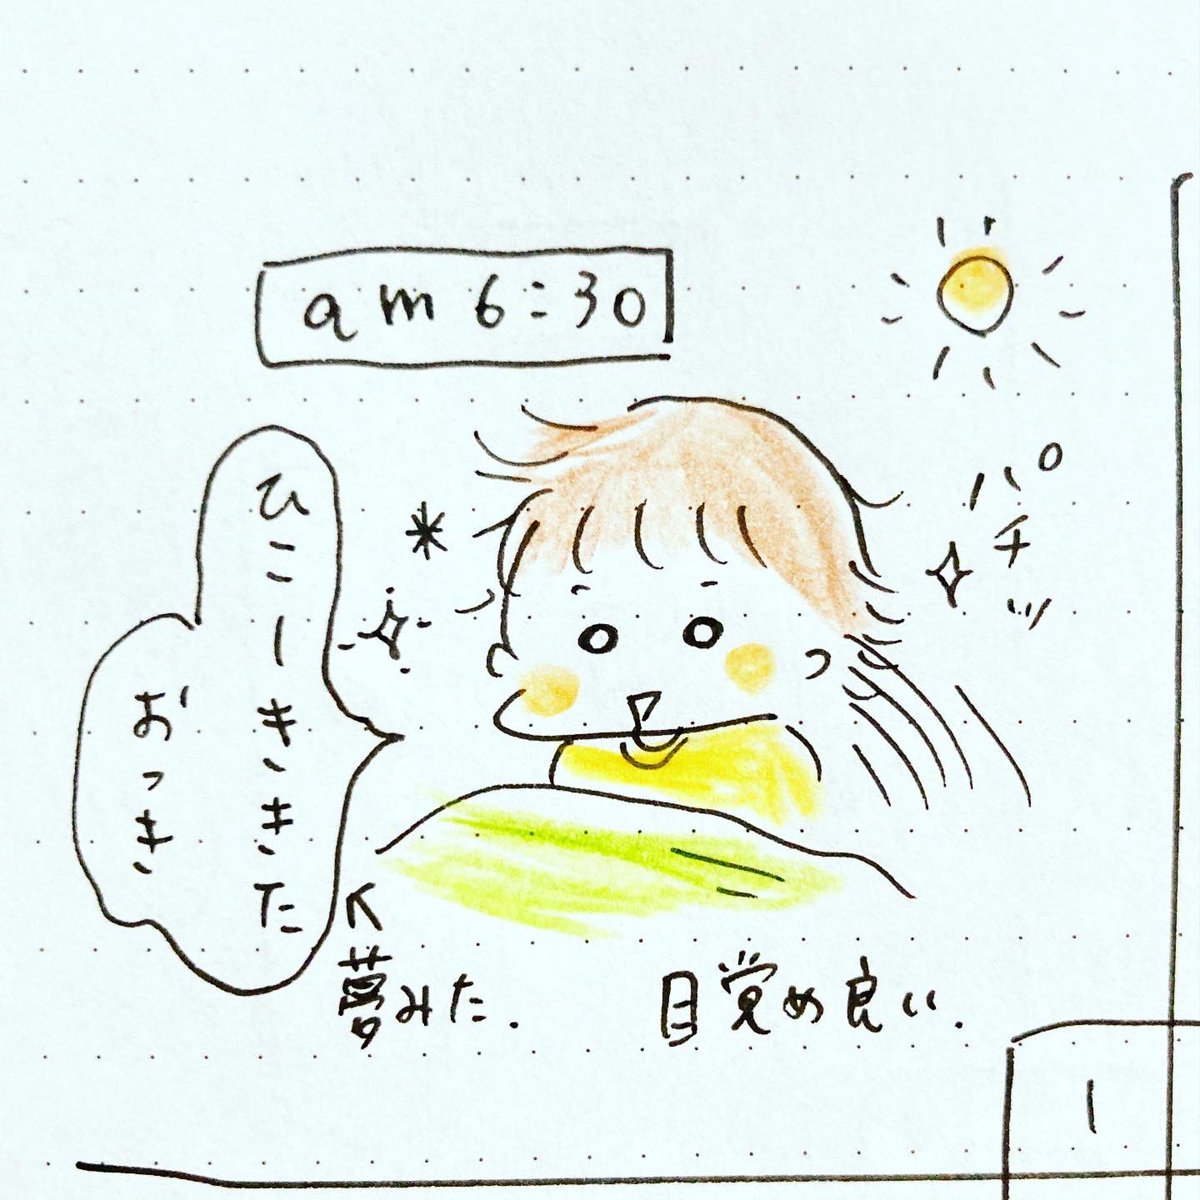 am 6:30
パチッ
ひこーききた
おっき
夢みた.
目覚め良い.
1